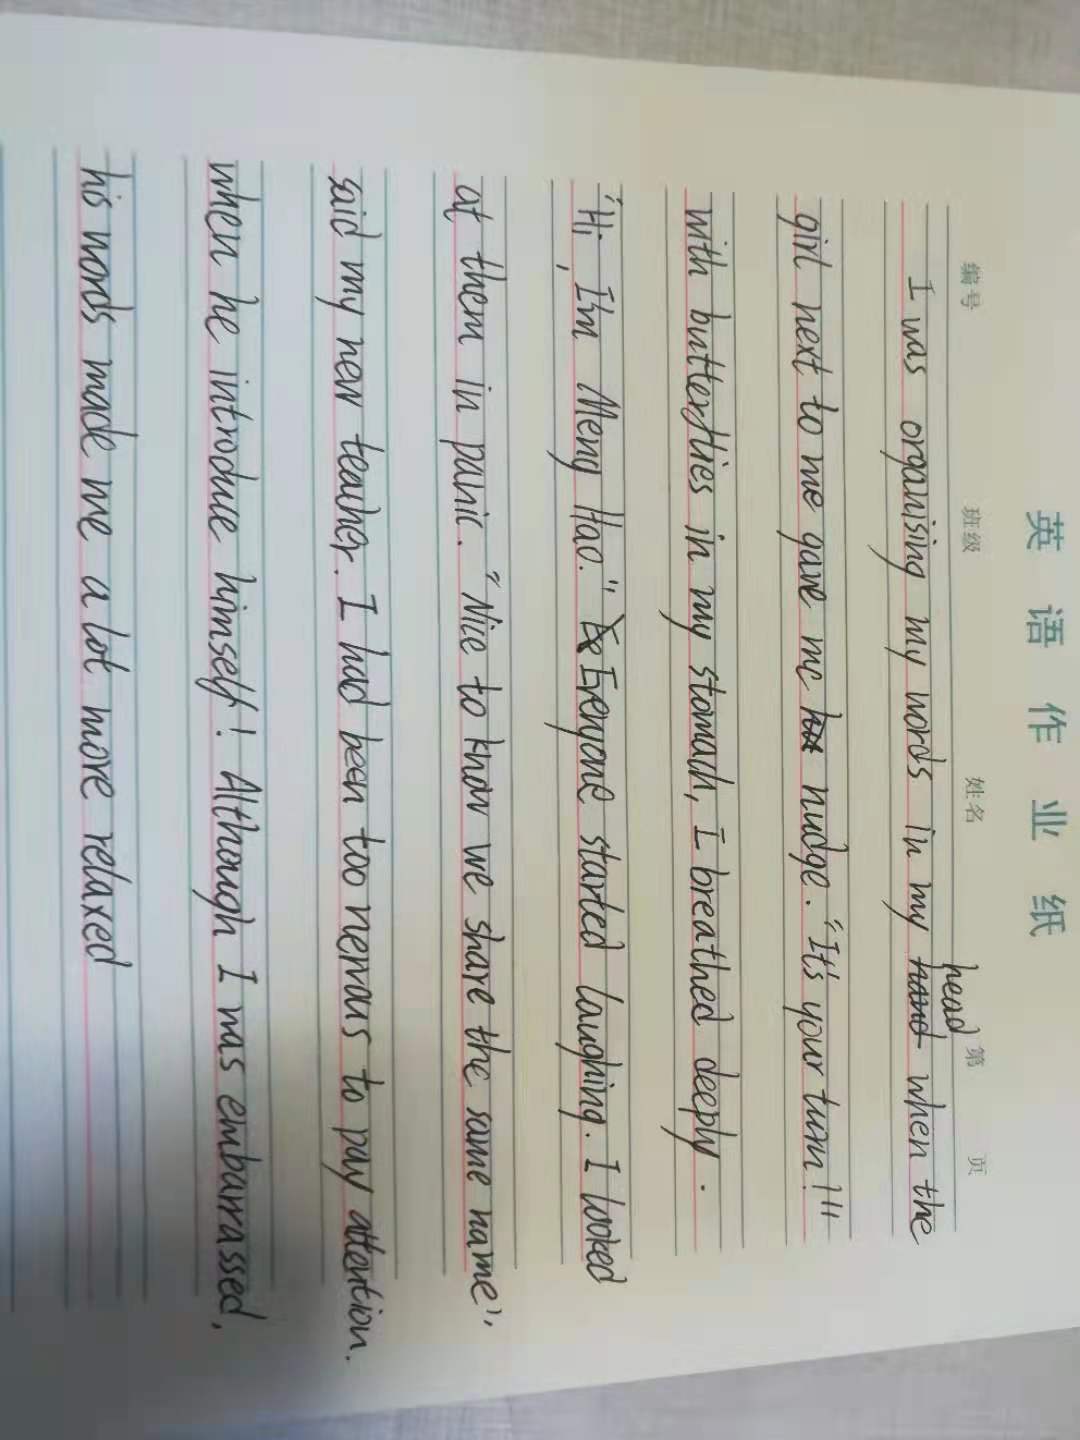 英语作业纸
编号 班级 姓名 第 页
I was organising my words in my head when the
girl next to me gave me nudge. "It's your turn!"
with butterflies in my stomach, I breathed deeply.
"Hi, I'm Meng Hao." Everyone started laughing. I looked
at them in panic. "Nice to know we share the same name",
said my new teacher. I had been too nervous to pay attention.
when he introduce himself! Although I was embarrassed,
his words made me a lot more relaxed